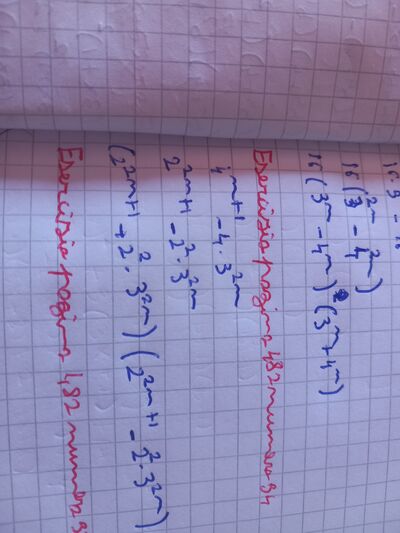 16(3²ᵐ - 4²ᵐ)
16(3ᵐ - 4ᵐ)(3ᵐ + 4ᵐ)
Esercizio pagina 482 numero 94
4ᵐ⁺¹ - 4 · 3²ᵐ
2²ᵐ⁺¹ - 2² · 3²ᵐ
(2²ᵐ⁺¹ + 2² · 3²ᵐ)(2²ᵐ⁺¹ - 2² · 3²ᵐ)
Esercizio pagina 482 numero